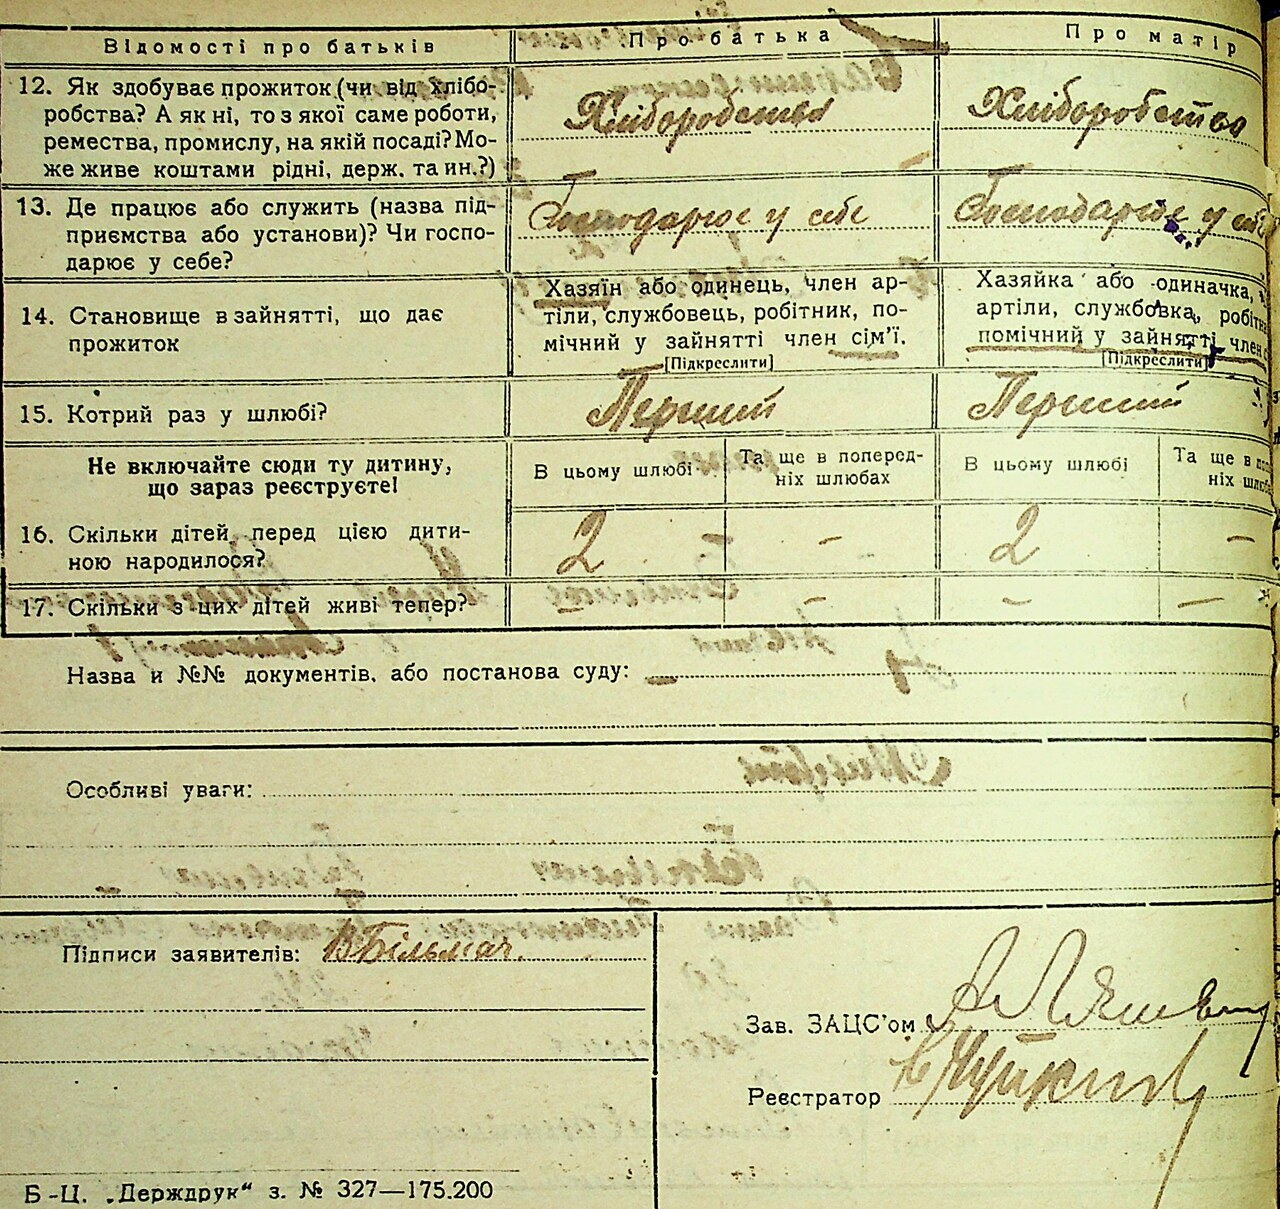 Відомості про батьків Про батька Про матір
12. Як здобуває прожиток (чи від хлібо-
робства? А як ні, то з якої саме роботи,
ремества, промислу, на якій посаді? Мо-
же живе коштами рідні, держ. та ин.?)
Хліборобство Хліборобство
13. Де працює або служить (назва під-
приємства або установи)? Чи госпо-
дарює у себе?
Господарює у себе Господарює у себе
14. Становище в зайнятті, що дає
прожиток
Хазяїн або одинець, член ар-
тіли, службовець, робітник, по-
мічний у зайнятті член сім'ї.
[Підкреслити]
Хазяйка або одиначка,
артіли, службовка, робітн
помічний у зайнятті член
[Підкреслити]
15. Котрий раз у шлюбі? Перший Перший
Не включайте сюди ту дитину,
що зараз реєструєте!
В цьому шлюбі
Та ще в поперед-
ніх шлюбах
В цьому шлюбі
Та ще в по
ніх шлюба
16. Скільки дітей, перед цією дити-
ною народилося?
2 – 2 –
17. Скільки з цих дітей живі тепер? – – – –
Назва и №№ документів, або постанова суду: —
Особливі уваги:
Підписи заявителів: В Більмач.
Зав. ЗАЦС'ом
Реєстратор
Б-Ц. „Держдрук" з. № 327—175.200